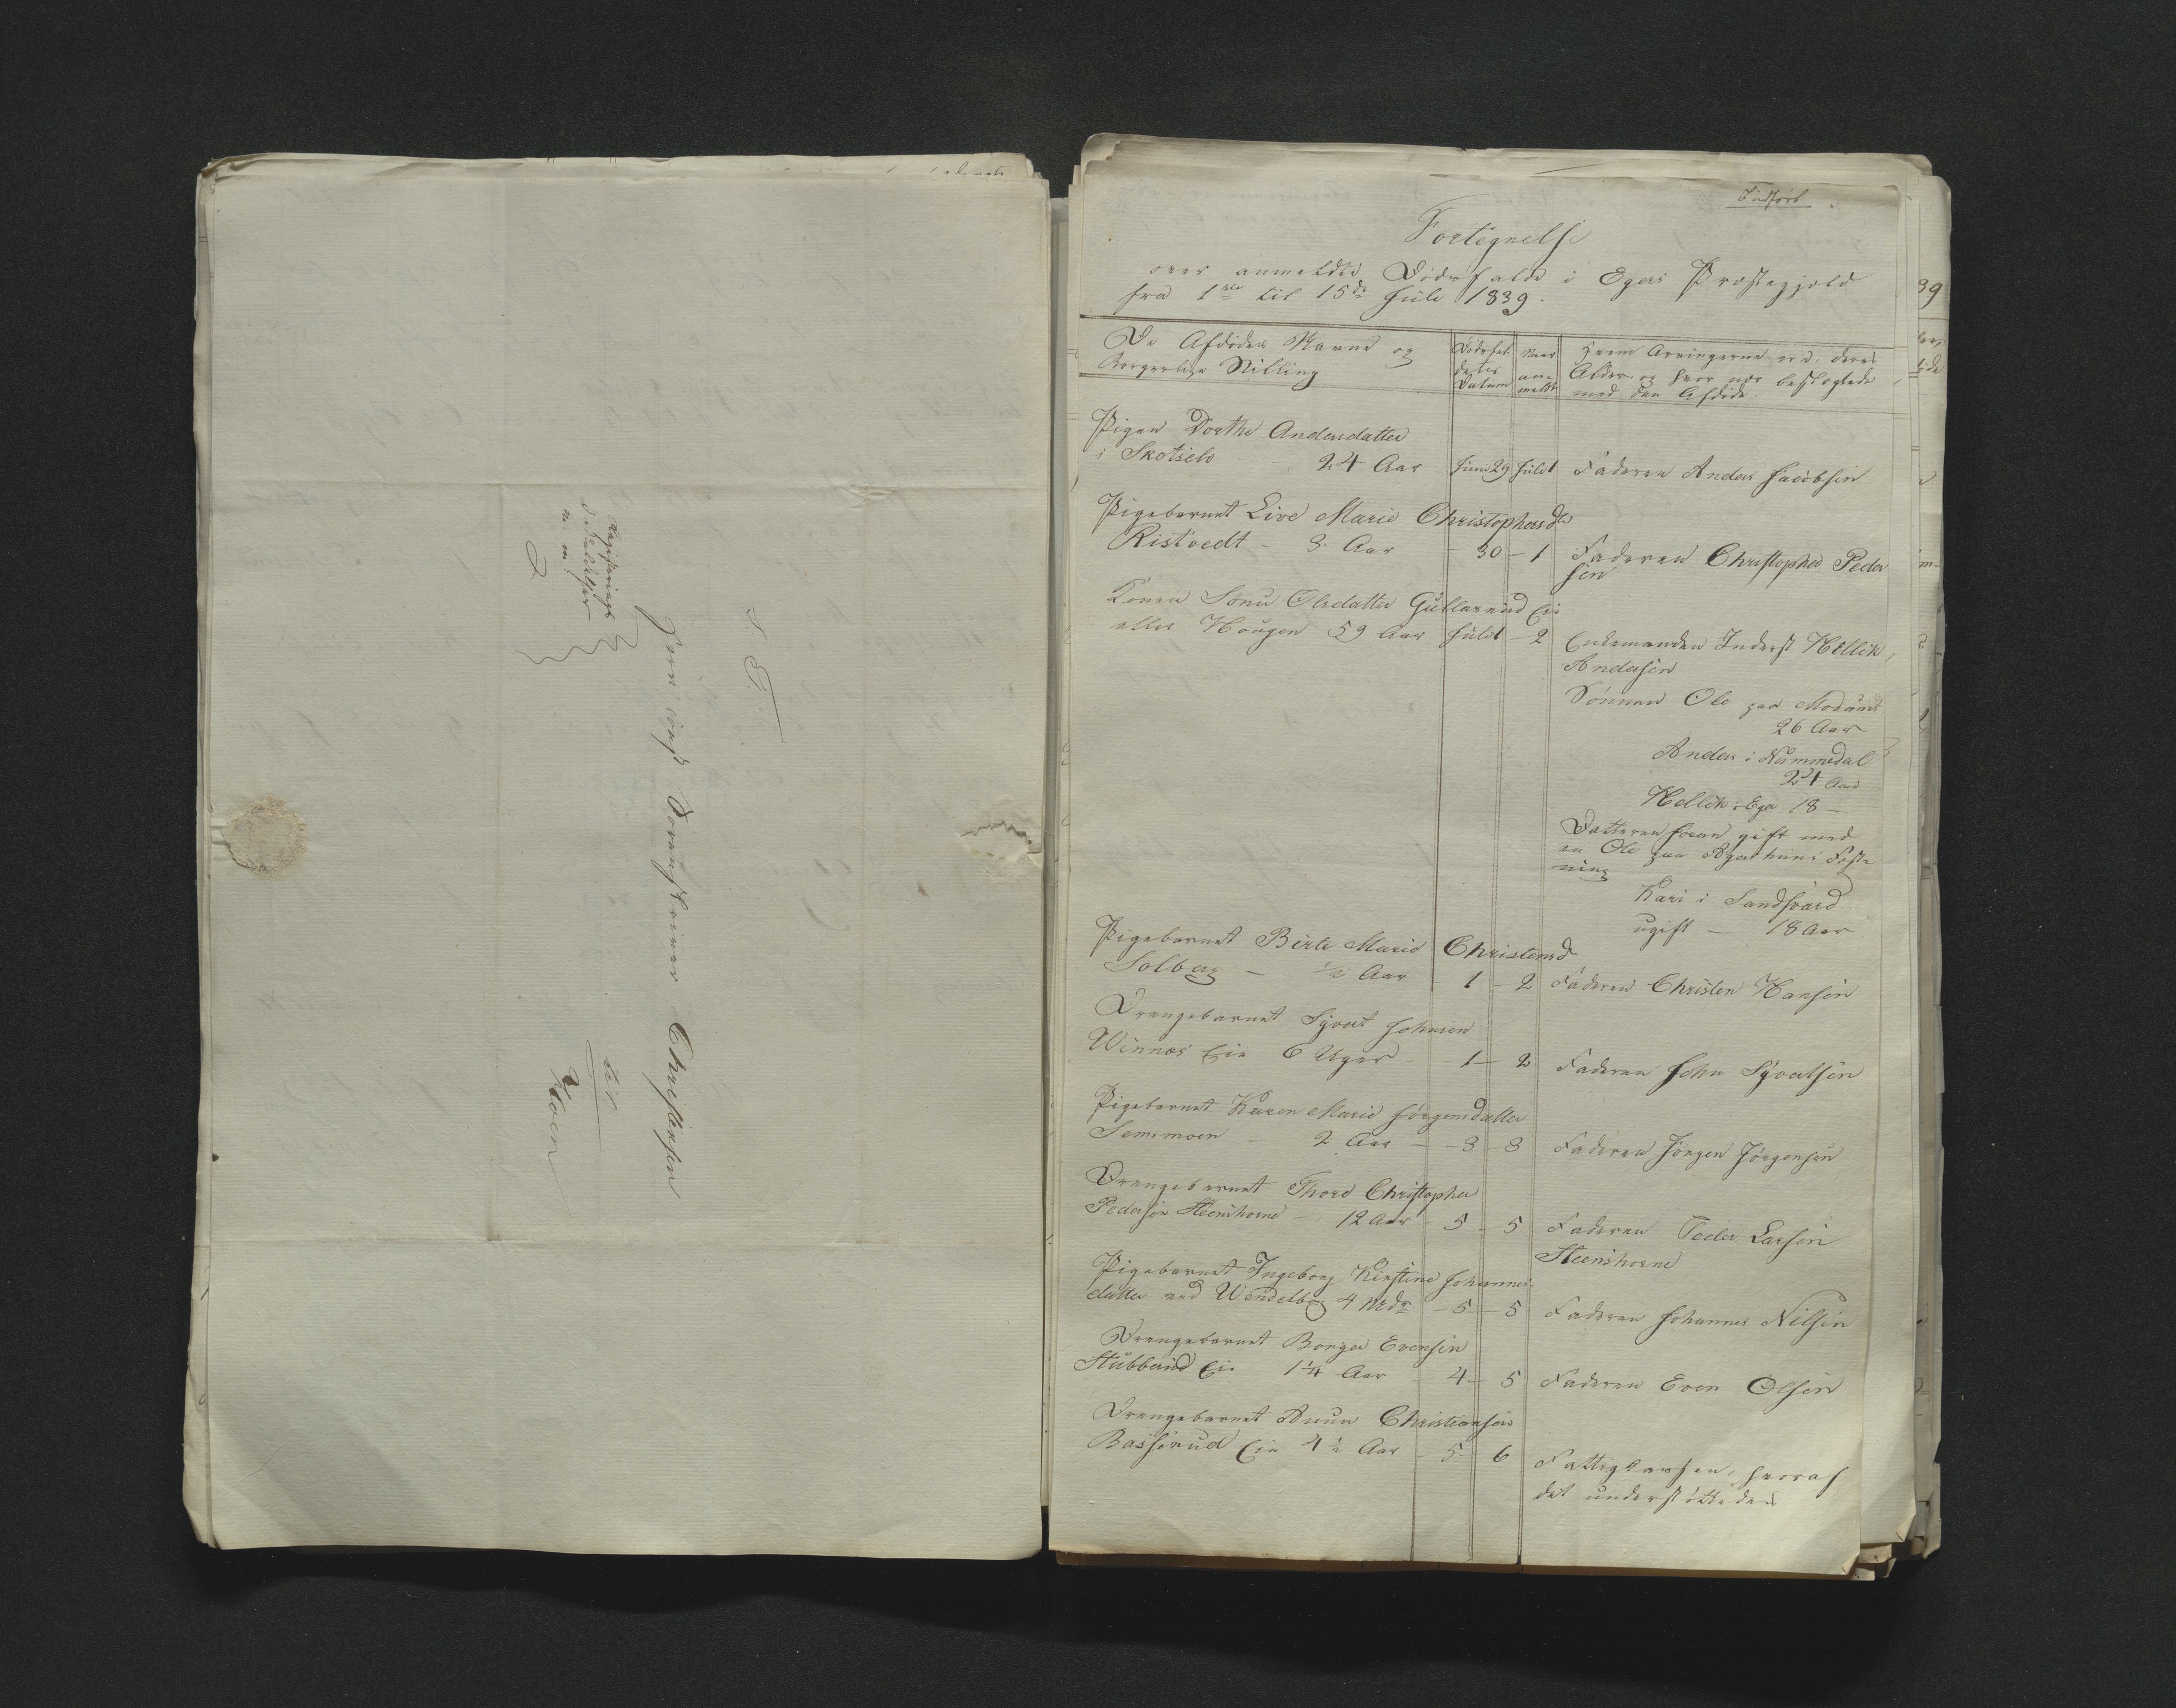 S. T.
Herr const Sorenskriver Christensen
til
Hoen
Registrerings
Indført
Fortegnelse
over anmeldte Dødsfalde i Egers Præstegjeld
fra 1ste til 15de Juli 1839.
De Afdødes Navne og
Borgerlige Stilling
Dødsfal-
dets
Datum
Naar
an-
meldt
Hvem Arvingerne ere, deres
Alder og hvor nær beslægtede
med den Afdøde
Pigen Dorthe Andersdatter
i Skotselv 24 Aar Juni 29 Juli 1 Faderen Anders Jacobsen
Pigebarnet Live Marie Christophersdtr
Ristvedt - 3 Aar - 30 - 1 Faderen Christopher Peder
sen
Konen Olsdatter Gullerud Eie
eller Hougen 59 Aar Juli 1 - 2 Enkemanden Inderst Hellik
Andersen
Sønnen Ole paa Modum
26 Aar
Anders i Nummedal
24 Aar
Hellik i Eger 18 -
Datteren gift med
en Ole paa Agerhuus Fæst-
ning
Kari i Sandsværd
ugift - 18 Aar
Pigebarnet Birte Marie Christensd
Solberg - ½ Aar 1 - 2 Faderen Christen Hansen
Drengebarnet Syvert Johnsen
Winnæs Eie 6 Uger - 1 - 2 Faderen John Syvertsen
Pigebarnet Karen Marie Jørgensdatter
Semsmoen - 2 Aar - 3 - 3 Faderen Jørgen Jørgensen
Drengebarnet Thore Christopher
Pedersen Steenshorne - 12 Aar - 5 - 5 Faderen Peder Larsen
Steenshorne
Pigebarnet Ingeborg Kirstine Johannes-
datter ved Wendelborg 4 Mdr - 5 - 5 Faderen Johannes Nilsen
Drengebarnet Borger Evensen
Stubberud Eie 1¼ Aar - 4 - 5 Faderen Even Olsen
Drengebarnet Christiansen
Basserud Eie 4½ Aar - 5 - 6 Fattigkassen, hvoraf
det understøttedes